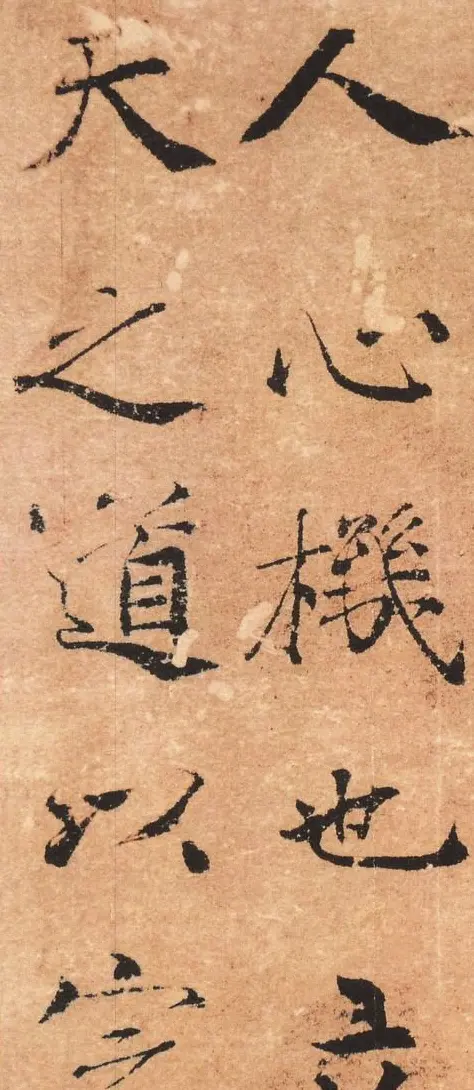 人心機也立
天之道以定